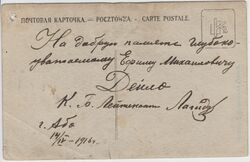 ПОЧТОВАЯ КАРТОЧКА. — POCZTÓWKA. — CARTE POSTALE.
На добрую память глубоко-
уважаемому Ефиму Михайловичу
Дейло
К. Б. Лейтенант
г. Або
1916 г.